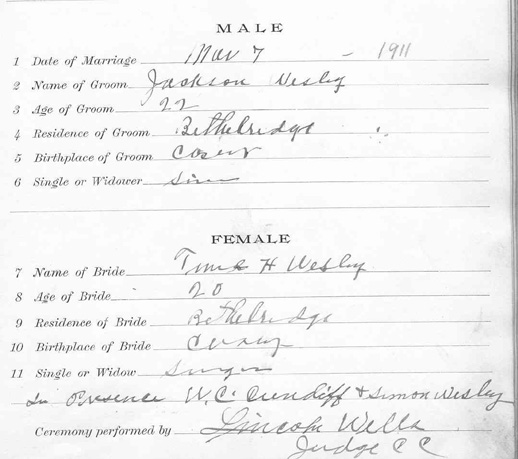 MALE
1 Date of Marriage Mar 7 - 1911
2 Name of Groom Jackson Wesley
3 Age of Groom 22
4 Residence of Groom Bethelridge
5 Birthplace of Groom Casey
6 Single or Widower
FEMALE
7 Name of Bride H Wesley
8 Age of Bride 20
9 Residence of Bride Bethelridge
10 Birthplace of Bride Casey
11 Single or Widow
In Presence W.C. Cundiff & Simon Wesley
Ceremony performed by Lincoln Wells
Judge CC